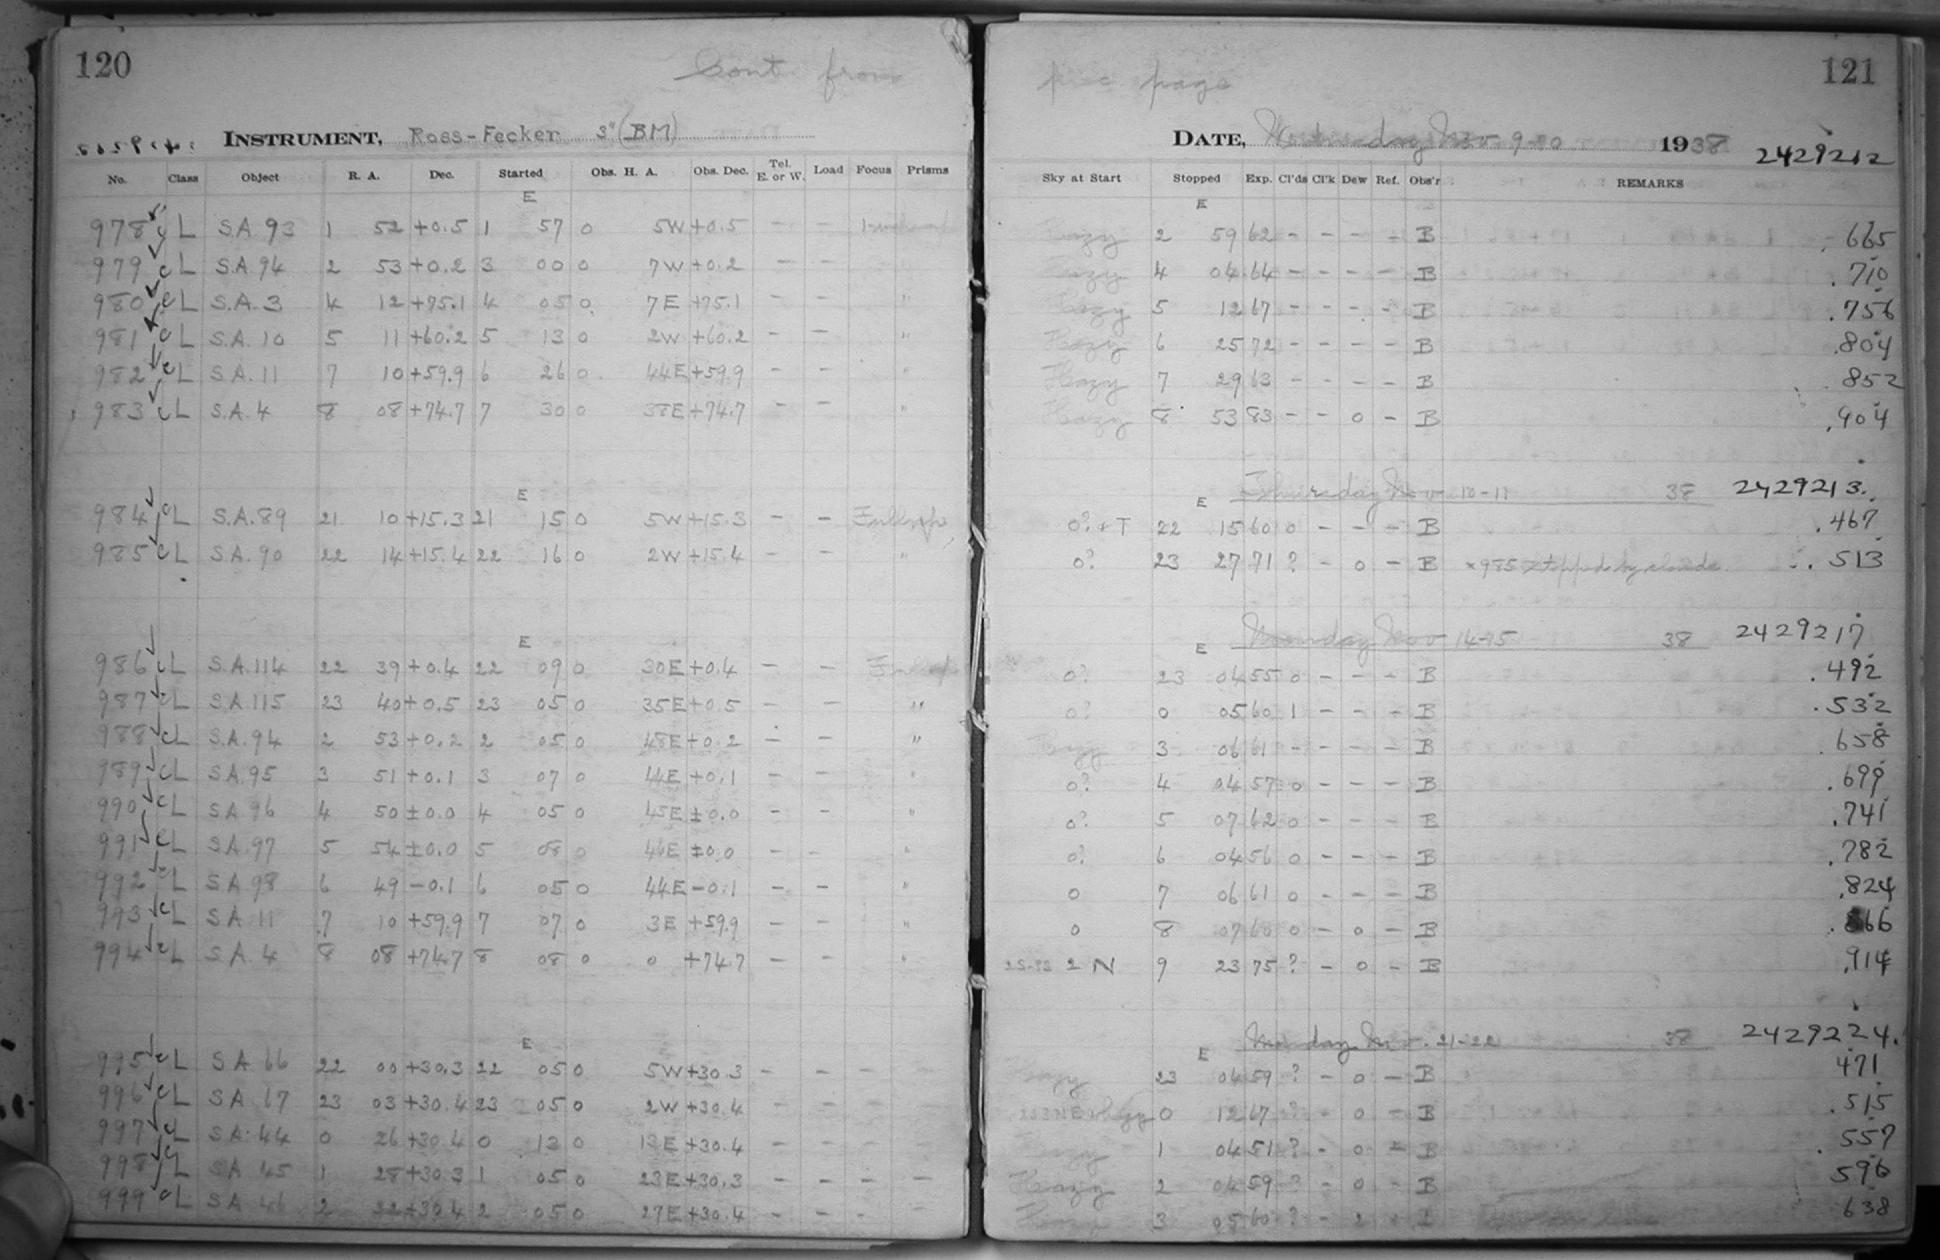 120
Cont from
INSTRUMENT, Ross-Fecker 3" (BM)
No. Class Object R. A. Dec. Started Obs. H. A. Obs. Dec. Tel. E. or W. Load Focus Prisms
E
978 c L S.A. 93 1 52 +0.5 1 57 0 5W +0.5 - -
979 c L S.A. 94 2 53 +0.2 3 00 0 7W +0.2 - - "
980 c L S.A. 3 4 12 +75.1 4 05 0 7E +75.1 - - "
981 c L S.A. 10 5 11 +60.2 5 13 0 2W +60.2 - - "
982 c L S.A. 11 7 10 +59.9 6 26 0 44E +59.9 - - "
983 c L S.A. 4 8 08 +74.7 7 30 0 38E +74.7 - - "
E
984 c L S.A. 89 21 10 +15.3 21 15 0 5W +15.3 - -
985 c L S.A. 90 22 14 +15.4 22 16 0 2W +15.4 - - "
E
986 c L S.A. 114 22 39 +0.4 22 09 0 30E +0.4 - -
987 c L S.A. 115 23 40 +0.5 23 05 0 35E +0.5 - - "
988 c L S.A. 94 2 53 +0.2 2 05 0 48E +0.2 - - "
989 c L S.A. 95 3 51 +0.1 3 07 0 44E +0.1 - - "
990 c L S.A. 96 4 50 ±0.0 4 05 0 45E ±0.0 - - "
991 c L S.A. 97 5 54 ±0.0 5 08 0 46E ±0.0 - - "
992 c L S.A. 98 6 49 -0.1 6 05 0 44E -0.1 - - "
993 c L S.A. 11 7 10 +59.9 7 07 0 3E +59.9 - - "
994 c L S.A. 4 8 08 +74.7 8 08 0 0 +74.7 - - "
E
995 c L S.A. 66 22 00 +30.3 22 05 0 5W +30.3 - - - -
996 c L S.A. 67 23 03 +30.4 23 05 0 2W +30.4 - - - -
997 c L S.A. 44 0 26 +30.4 0 13 0 13E +30.4 - - - -
998 c L S.A. 45 1 28 +30.3 1 05 0 23E +30.3 - - - -
999 c L S.A. 46 2 32 +30.4 2 05 0 27E +30.4 - - - -
121
page
DATE, Wednesday Nov 9-10 1938 2429212
Sky at Start Stopped Exp. Cl'ds Cl'k Dew Ref. Obs'r REMARKS
E
Hazy 2 59 62 - - - - B .665
Hazy 4 04 64 - - - - B .710
Hazy 5 12 67 - - - - B .756
Hazy 6 25 72 - - - - B .804
Hazy 7 29 63 - - - - B .852
Hazy 8 53 83 - - 0 - B .904
E Thursday Nov 10-11 38 2429213.
0? + T 22 15 60 0 - - - B .467
0? 23 27 71 ? - 0 - B x 985 stopped by clouds. .513
E Monday Nov 14-15 38 2429217
0? 23 04 55 0 - - - B .492
0? 0 05 60 1 - - - B .532
Hazy 3 06 61 - - - - B .658
0? 4 04 57 0 - - - B .699
0? 5 07 62 0 - - - B .741
0? 6 04 56 0 - - - B .782
0 7 06 61 0 - - - B .824
0 8 07 60 0 - 0 - B .866
2 N 9 23 75 ? - 0 - B .914
E Monday Nov. 21-22 38 2429224.
Hazy 23 04 59 ? - 0 - B 471
0 12 67 ? - 0 - B .515
Hazy 1 04 51 ? - 0 - B .557
Hazy 2 04 59 ? - 0 - B 596
Hazy 3 05 60 ? - 638